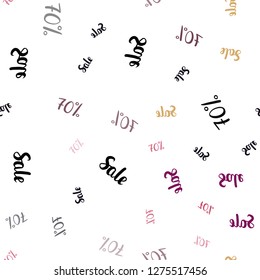 70%
Sale
70%
Sale
Sale
Sale
Sale
70%
Sale
Sale
Sale
70%
Sale
70%
70%
70%
70%
Sale
Sale
Sale
Sale
Sale
Sale
70%
70%
70%
70%
Sale
70%
Sale
70%
Sale
1275517456